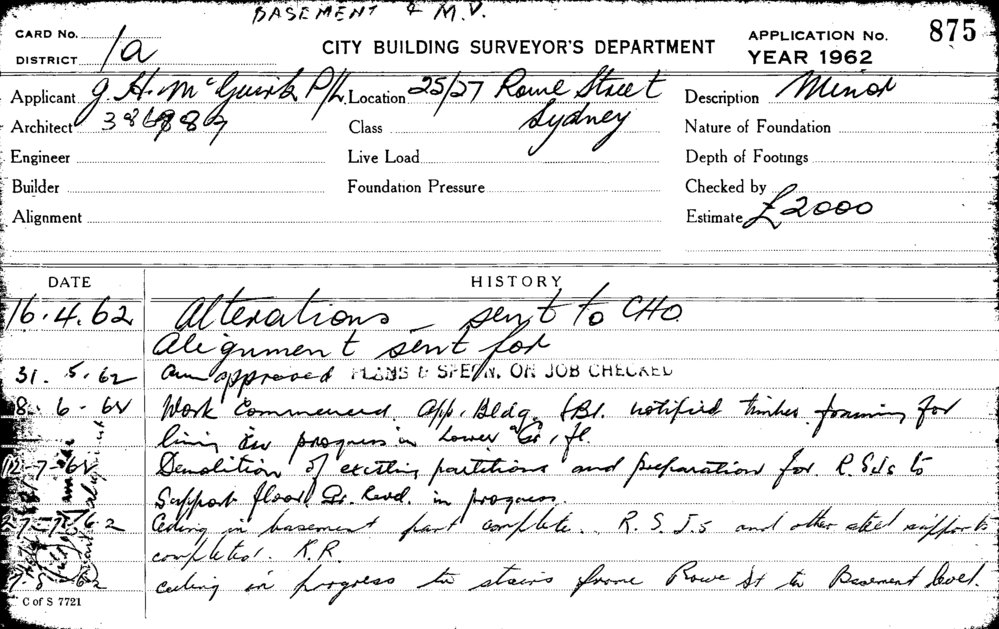 BASEMENT & M.V.
CARD No.
DISTRICT 1a
CITY BUILDING SURVEYOR'S DEPARTMENT
APPLICATION No. 875
YEAR 1962
Applicant J. H. McGuirk P/L.
Location 25/27 Rowe Street
Sydney
Description Minor
Architect
Class
Nature of Foundation
Engineer
Live Load
Depth of Footings
Builder
Foundation Pressure
Checked by
Alignment
Estimate £2000
DATE
HISTORY
16.4.62 Alterations - sent to CHO
Alignment sent for
31.5.62 approved PLANS & SPECN. ON JOB CHECKED
8.6.62 Work Commenced. App. Bldg. notified timber framing for
lining in progress in Lower Gr. fl.
12-7-62 Demolition of existing partitions and preparation for R.S.Js to
Support floor Gr. in progress.
27-7-62 Ceiling in basement part complete. R.S.J.s and other steel supports
completed. K.R.
7-8-62 ceiling in progress to stairs from Rowe St to Basement level.
C of S 7721